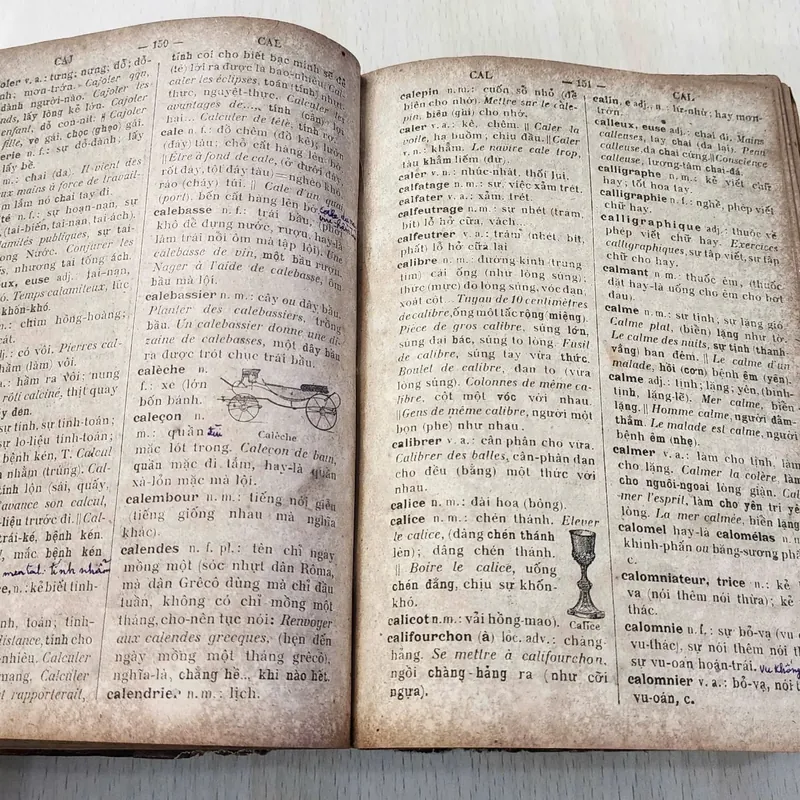 CAJ — 150 — CAL
cajoler v. a.: tưng; nưng; dỗ; dỗ-
dành; mơn-trớn. Cajoler qqn,
dành người-nào. Cajoler les
lấy lòng kẻ lớn. Cajoler
enfant, dỗ con-nít. || Cajoler
fille, ve gái, chọc (ghẹo) gái.
n. f.: sự dỗ-dành, lấy
bề.
m.: chai (da). Il vient des
aux mains à force de travail-
làm lắm nó chai tay đi.
n. f.: sự hoạn-nạn, sự
(tai-biến, tai-nạn, tai ách).
Calamités publiques, sự tai-
Conjurer les
nhương tai tống ách.
adj. tai-nạn,
khó. Temps calamiteux, lúc
khốn-khó.
m.: chim hồng-hoàng;
cát.
adj.: có vôi. Pierres cal-
hầm (làm) vôi.
a.: hầm ra vôi: nung
rôti calciné, thịt quay
cháy đen.
sự tính, sự tính-toán;
sự lo-liệu tính-toán;
bệnh kén, T. Calcul
nhằm (trúng). Calcul
tính lộn (sái, quấy,
avance son calcul,
liệu trước đi. || Cal-
trái-ké, bệnh kén.
mắc bệnh kén
mental: tính nhẩm
n.: kẻ biết tính-
toán; tính-
distance, tính cho
nhiêu. Calculer
mang. Calculer
rapporterait,
tính coi cho biết bạc mình sẽ đổ
(tẻ) lời ra được là bao-nhiêu. Cal-
culer les éclipses, toán (tính) nhựt
thực, nguyệt-thực. Calculer les
avantages de..., tính (cân) lợi
hại... Calculer de tête, tính nhẩm.
cale n. f.: đồ chêm (đồ kê); lườn
(đáy) tàu; chỗ cất hàng lên bờ.
|| Être à fond de cale, (ở dưới đáy
rốt đáy, tột đáy tàu) = nghèo khổ,
ráo (cháy) túi. || Cale d'un quai
(port). bến cất hàng lên bờ
calebasse n. f.: trái bầu, (phơi
khô để đựng nước, rượu, hay-là
làm trái nồi ôm mà tập lội). Une
calebasse de vin, một bầu rượu.
Nager à l'aide de calebasse, ôm
bầu mà lội.
calebassier n. m.: cây ou dây bầu.
Planter des calebassiers, trồng
bầu. Un calebassier donne une di-
zaine de calebasses, một dây bầu
ra được trót chục trái bầu.
calèche n.
f.: xe (lớn
bốn bánh.
caleçon n. Calèche
m.: quần đùi
mặc lót trong. Caleçon de bain,
quần mặc đi tắm, hay-là quần
xà-lỏn mặc mà lội.
calembour n. m.: tiếng nói giễu
(tiếng giống nhau mà nghĩa
khác).
calendes n. f. pl.: tên chỉ ngày
mồng một (sóc nhựt dân Rôma,
mà dân Grêcô dùng mà chỉ đầu
tuần, không có chỉ mồng một
tháng, cho-nên tục nói: Renvoyer
aux calendes grecques, (hẹn đến
ngày mồng một tháng grêcô),
nghĩa-là, chẳng hề..., khi nào hết.
calendrier n. m.: lịch.
CAL — 151 — CAL
calepin n. m.: cuốn sổ nhỏ (để
biên cho nhớ). Mettre sur le cale-
pin, biên (ghi) cho nhớ.
caler v. a.: kê, chêm. || Caler la
voile, hạ buồm, chịu đầu. || Caler
v. n.: khẳm. Le navire cale trop,
tàu khẳm lắm (dư).
caler v. n.: nhúc-nhát, thối lui.
calfatage n. m.: sự, việc xảm trét.
calfater v. a.: xảm, trét.
calfeutrage n. m.: sự nhét (trám,
bít) lỗ hở, vách.
calfeutrer v. a.: trám (nhét, bít,
phất) lỗ hở cửa lại
calibre n. m.: đường kính (trung
tim) cái ống (như lòng súng);
thức (mực) đo lòng súng, vóc đạn,
xoát cột. Tuyau de 10 centimètres
de calibre, ống một tấc rộng (miệng).
Pièce de gros calibre, súng lớn,
súng đại bác, súng to lòng. Fusil
de calibre, súng tay vừa thức.
Boulet de calibre, đạn to (vừa
lòng súng). Colonnes de même ca-
libre, cột một vóc với nhau.
|| Gens de même calibre, người một
bọn (phe) như nhau.
calibrer v. a.: cân phân cho vừa.
Calibrer des balles, cân-phân đạn
cho đều (bằng) một thức với
nhau.
calice n. m.: đài hoa (bông).
calice n. m.: chén thánh. Elever
le calice, (dâng chén thánh
lên); dâng chén thánh.
|| Boire le calice, uống
chén đắng, chịu sự khốn-
khó. Calice
calicot n. m.: vải hồng-mao).
califourchon (à) loc. adv.: chàng-
hảng. Se mettre à califourchon,
ngồi chàng-hảng ra (như cỡi
ngựa).
câlin, e adj., n.: lừ-nhừ; hay mơn-
trớn.
calleux, euse adj.: chai đi. Mains
calleuses, tay chai (da lại). Peau
calleuse, da chai cứng; || Conscience
calleuse, lương-tâm chai-đá.
calligraphe n. m.: kẻ viết chữ
hay; tốt hoa tay.
calligraphie n. f.: nghề, phép viết
chữ hay.
calligraphique adj.: thuộc về
phép viết chữ hay. Exercices
calligraphiques, sự tập viết, sự tập
chữ cho hay.
calmant n. m.: thuốc êm, (thuốc
đặt hay-là uống cho êm cho bớt
đau).
calme n. m.: sự tịnh, sự lặng gió.
Calme plat, (biển) lặng như tờ.
Le calme des nuits, sự tịnh (thanh-
vắng) ban đêm. || Le calme d'un
malade, hồi (cơn) bệnh êm (yên).
calme adj.: tịnh; lặng; yên, (bình-
tịnh, lặng-lẽ). Mer calme, biển
lặng. || Homme calme, người đằm-
thắm. Le malade est calme, người
bệnh êm (nhẹ).
calmer v. a.: làm cho tịnh, làm
cho lặng. Calmer la colère, làm
cho nguôi-ngoai lòng giận. Cal-
mer l'esprit, làm cho yên trí yên
lòng. La mer calmée, biển lặng
calomel hay-là calomélas n. m.:
khinh-phấn ou băng-sương phấn
calomniateur, trice n.: kẻ
vạ (nói thêm nói thừa); kẻ
thác.
calomnie n. f.: sự bỏ-vạ (vu
vu-thác), sự nói thêm nói
sự vu-oan hoạn-trái. vu khống
calomnier v. a.: bỏ-vạ, nói
vu-oán, c.